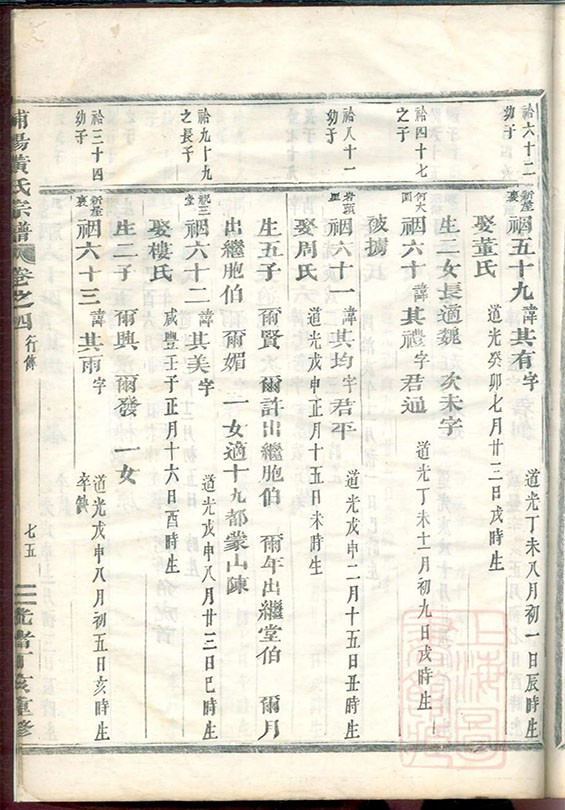 祫六十二
幼子
新產裏
裀五十九諱其有字 道光丁未八月初一日辰時生
娶董氏 道光癸卯七月廿三日戌時生
生二女長適魏 次未字
祫四十七
之子
何大園
裀六十諱其禮字君通 道光丁未十一月初九日戌時生
被擄
祫八十一
幼子
岩頭
裀六十一諱其均字君平 道光戊申二月十五日丑時生
娶周氏 道光戊申正月十五日未時生
生五子 爾賢 爾許出繼胞伯 爾年出繼堂伯 爾月
出繼胞伯 爾媚 一女適十九都蒙山陳
祫九十九
之長子
裀六十二諱其美字 道光戊申八月廿三日巳時生
娶樓氏 咸豐壬子正月十六日酉時生
生二子 爾興 爾發 一女
祫三十四
幼子
新產裏
裀六十三諱其雨字 道光戊申八月初五日亥時生
卒缺
浦陽黃氏宗譜 卷之四 行傳
七五
光緒 亥重修
上海圖